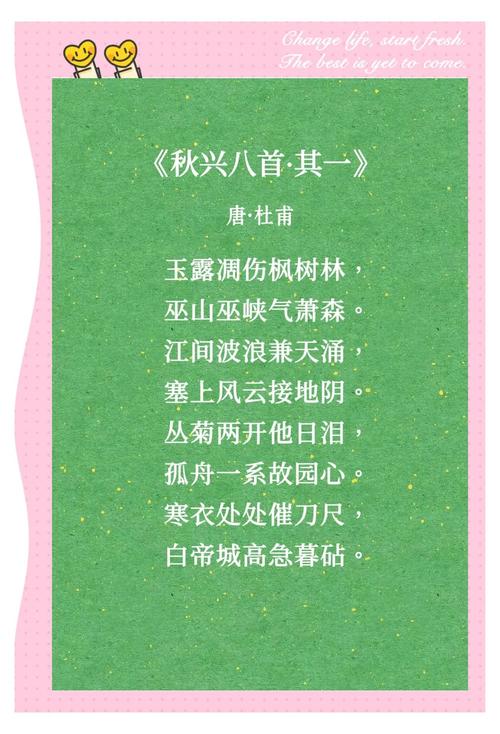 Change life, start fresh.
The best is yet to come.
《秋兴八首·其一》
唐·杜甫
玉露凋伤枫树林，
巫山巫峡气萧森。
江间波浪兼天涌，
塞上风云接地阴。
丛菊两开他日泪，
孤舟一系故园心。
寒衣处处催刀尺，
白帝城高急暮砧。